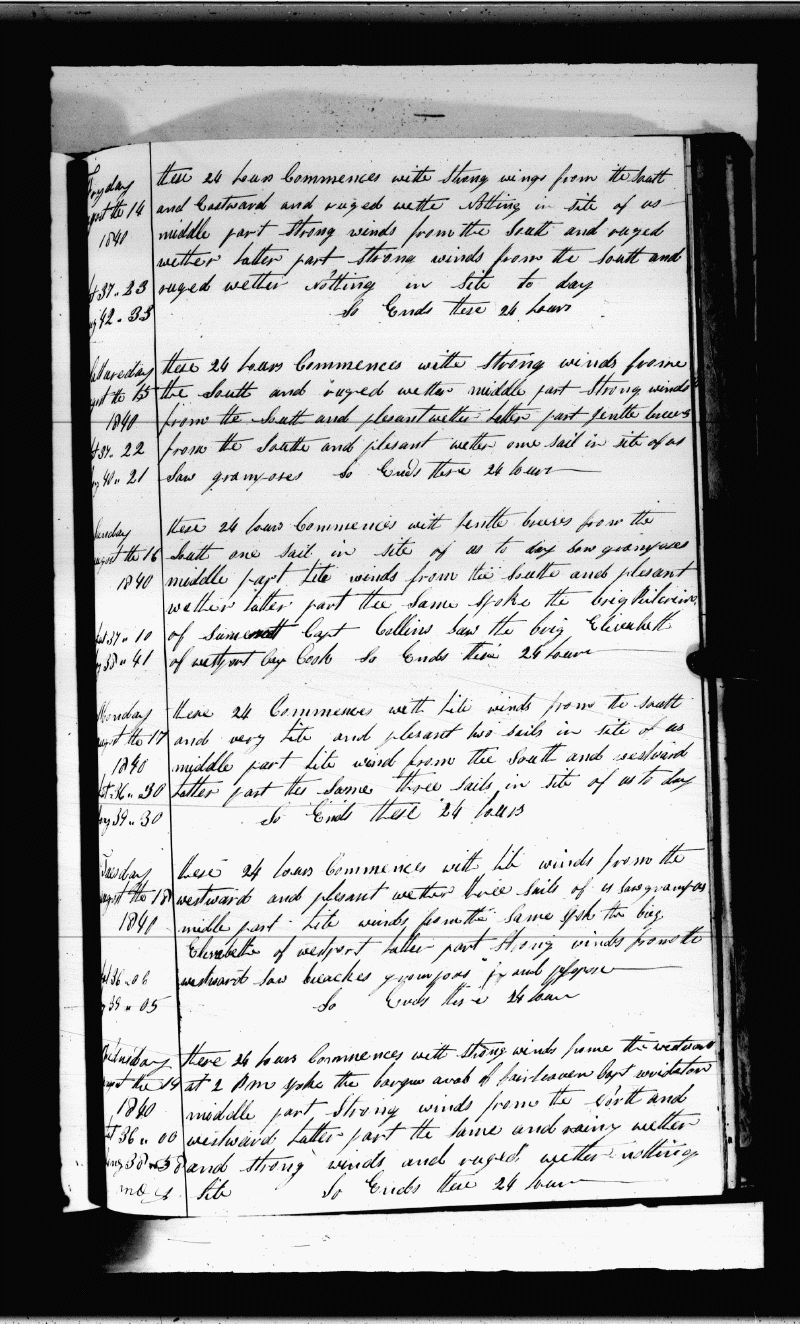 Fryday
august the 14
1840
Lat 37 .. 23
Long 42 .. 33
these 24 hours Commences withe Strong wings from the South
and Eastward and ruged wether Notting in site of us
middle part Strong winds from the South and ruged
wether latter part Strong winds from the South and
ruged wether Notting in Site to day
So Ends these 24 hours
Satureday
august the 15
1840
Lat 37 .. 22
Long 40 .. 21
these 24 hours Commences withe Strong winds frome
the South and ruged wether middle part Strong winds
from the South and plesant wether latter part gentle breeses
from the Southe and plesant wether one sail in site of us
Saw gramposes So Ends these 24 hours
Sunday
august the 16
1840
Lat 37 .. 10
Long 38 .. 41
these 24 hours Commences with gentle breeses from the
South one sail in site of us to day Saw gramposes
middle part Lite winds from the Southe and plesant
wether latter part the Same Spoke the brig
of Capt Collins Saw the brig Elizabeth
of westport Cap Cook So Ends these 24 hours
Monday
august the 17
1840
Lat 36 .. 30
Long 39 .. 30
these 24 Commences with Lite winds from the South
and very Lite and plesant two sails in site of us
middle part Lite wind from the South and westward
Latter part the Same three Sails in site of us to day
So Ends these 24 hours
Tuesday
august the 18
1840
Lat 36 .. 06
Long 39 .. 05
these 24 hours Commences with Lite winds from the
westward and plesant wether three Sails of us Saw grampos
middle part Lite winds from the Same Spok the brig
Elizabeth of westport latter part Strong winds from the
westward Saw breaches grampos and
So Ends these 24 hours
Wednesday
august the 19
1840
Lat 36 .. 00
Long 38 .. 58
these 24 hours Commences with Strong winds frome the westward
at 2 P m Spoke the barque arab of fairhaven Capt
middle part Strong winds from the North and
westward Latter part the Same and rainy wether
and Strong winds and ruged wether nothing
Site So Ends these 24 hours